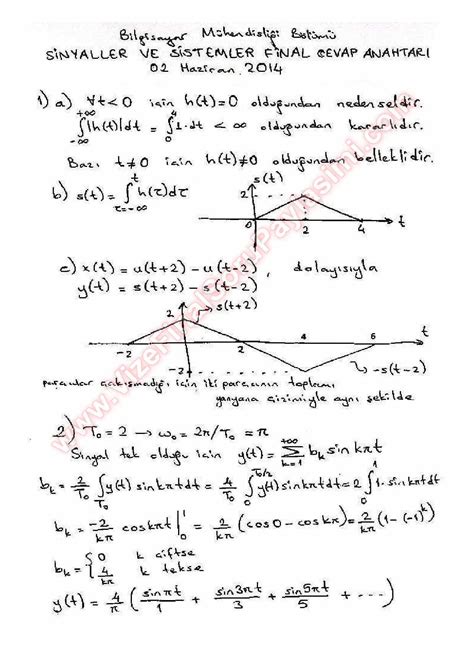 Bilgisayar Mühendisliği Bölümü
SİNYALLER VE SİSTEMLER FİNAL CEVAP ANAHTARI
02 Haziran 2014
1) a) ∀t<0 için h(t)=0 olduğundan nedenseldir.
∫_{-∞}^{+∞} |h(t)|dt = ∫_0^4 1·dt < ∞ olduğundan kararlıdır.
Bazı t≠0 için h(t)≠0 olduğundan belleklidir.
b) s(t) = ∫_{τ=-∞}^{t} h(τ)dτ
s(t)
2
0 2 4 t
c) x(t) = u(t+2) - u(t-2), dolayısıyla
y(t) = s(t+2) - s(t-2)
2 s(t+2) t
-2 2 4 6
-2 -s(t-2)
parçalar çakışmadığı için iki parçanın toplamı
yanyana çizimiyle aynı şekilde
2) T₀ = 2 → ω₀ = 2π/T₀ = π
Sinyal tek olduğu için y(t) = Σ_{k=1}^{+∞} b_k sin kπt
b_k = 2/T₀ ∫_{T₀} y(t) sin kπt dt = 4/T₀ ∫_0^{T₀/2} y(t) sin kπt dt = 2 ∫_0^1 1·sin kπt dt
b_k = -2/kπ cos kπt |_0^1 = 2/kπ (cos 0 - cos kπ) = 2/kπ (1 - (-1)^k)
b_k = { 0 k çiftse
4/kπ k tekse
y(t) = 4/π ( sin πt/1 + sin 3πt/3 + sin 5πt/5 + ··· )
www.VizeFinalSoruPaylasimi.com